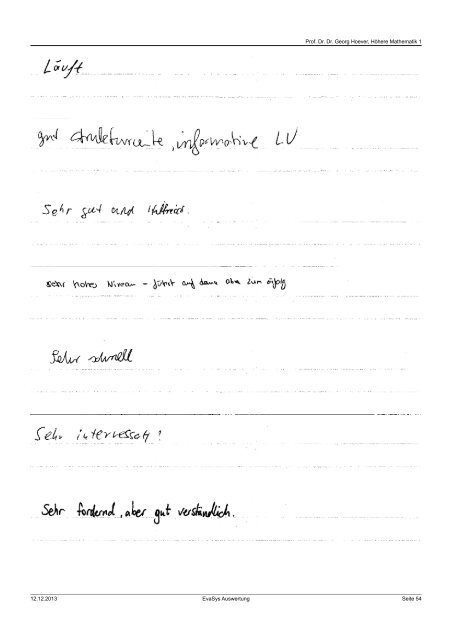 Prof. Dr. Dr. Georg Hoever, Höhere Mathematik 1
Läuft
gut strukturierte, informative LV
Sehr gut und hilfreich.
sehr hohes Niveau - führt auf dauer aber zum Erfolg
Sehr schnell
Sehr interessant!
Sehr fordernd, aber gut verständlich.
12.12.2013 EvaSys Auswertung Seite 54